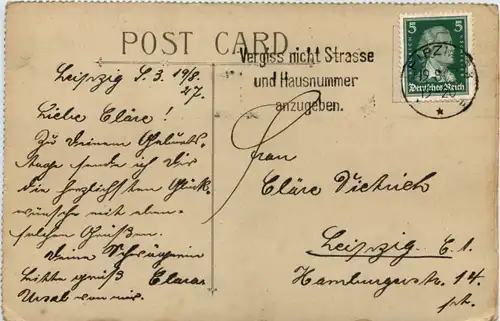 POST CARD
Vergiss nicht Strasse
und Hausnummer
anzugeben.
5 5
Deutsches Reich
Leipzig S. 3. 19/8.
27.
Liebe Cläre!
Zu Deinem Geburts-
tage sende ich Dir
die herzlichsten Glück-
wünsche mit eben-
solchen Grüßen.
Deine Schwägerin
Clara.
Bitte grüß
Ursel von mir.
Frau
Cläre Dietrich
Leipzig. C. 1.
Hamburgerstr. 14.